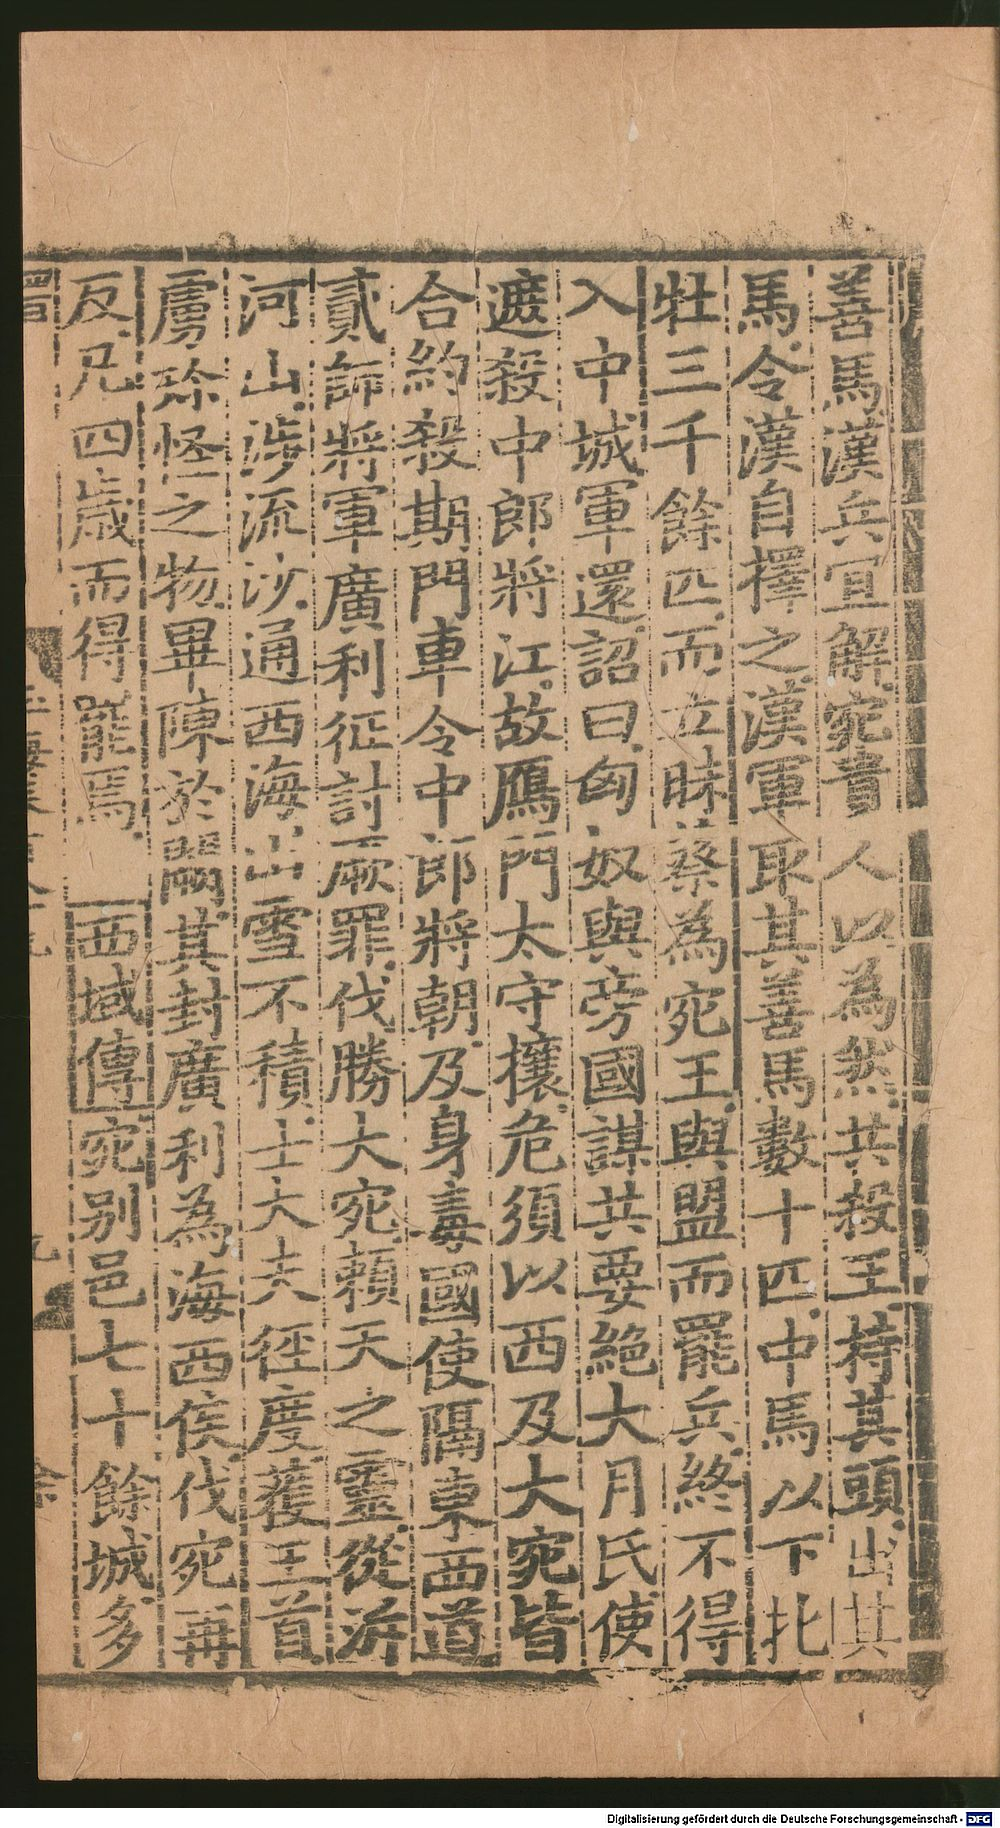 善馬漢兵宜解宛貴人以為然共殺王持其頭出其
馬令漢自擇之漢軍取其善馬數十匹中馬以下牝
牡三千餘匹而立昧蔡為宛王與盟而罷兵終不得
入中城軍還詔曰匈奴與旁國謀共要絕大月氏使
遮殺中郎將江故鴈門太守攘危須以西及大宛皆
合約殺期門車令中郎將朝及身毒國使隔東西道
貳師將軍廣利征討厥罪伐勝大宛賴天之靈從泝
河山涉流沙通西海山雪不積士大夫徑度獲王首
虜珍怪之物畢陳於闕其封廣利為海西侯伐宛再
反凡四歲而得罷焉 西域傳宛別邑七十餘城多
Digitalisierung gefördert durch die Deutsche Forschungsgemeinschaft - DFG